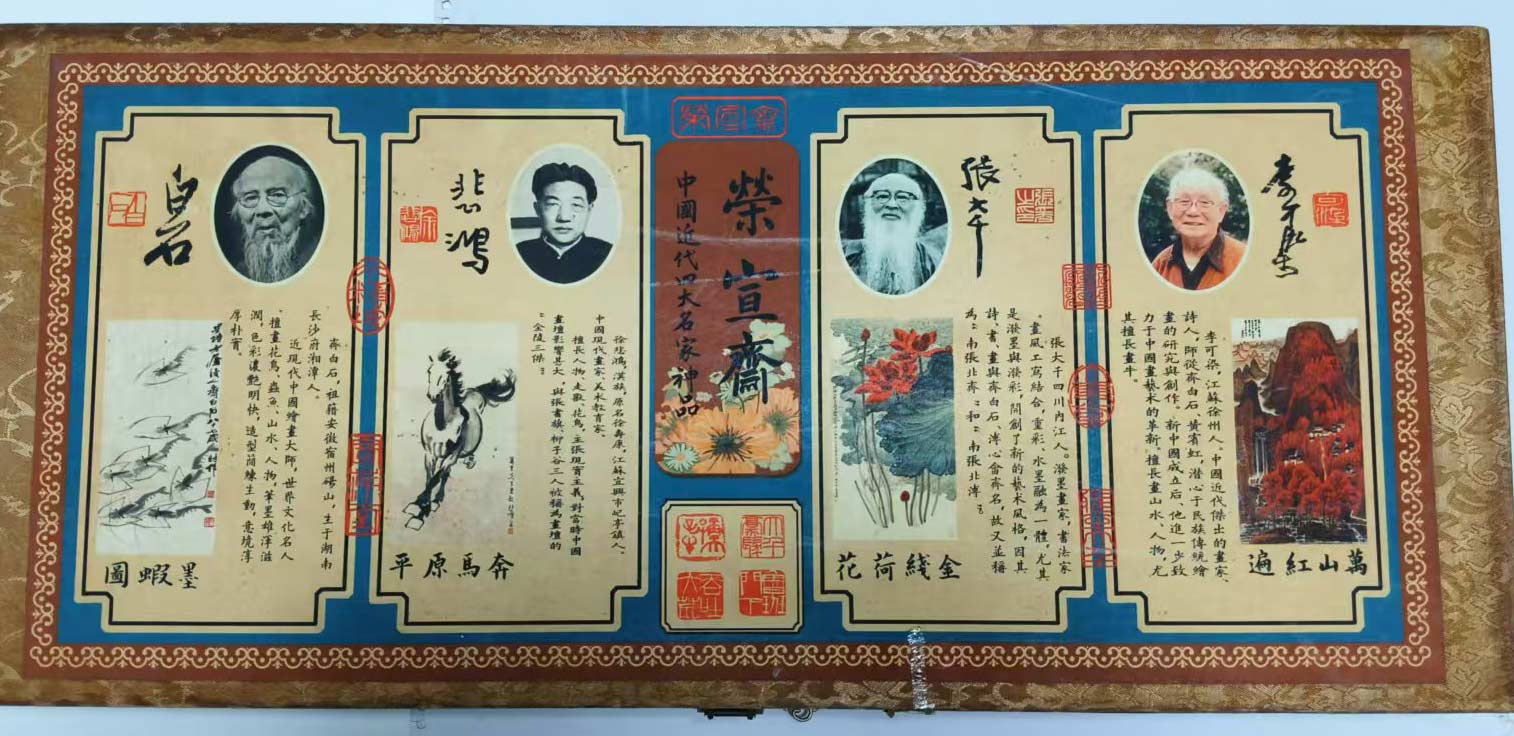 李可染
李可染，江蘇徐州人。中國近代傑出的畫家、
詩人，師從齊白石、黃賓虹，潛心于民族傳統繪
畫的研究與創作。新中國成立后，他進一步致
力于中國畫藝术的革新，擅長畫山水、人物，尤
其擅長畫牛。
萬山紅遍
張大千
張大千四川內江人。潑墨畫家，書法家
。畫風工寫結合，重彩、水墨融為一體，尤其
是潑墨與潑彩，開創了新的藝术風格，因其
詩、書、畫與齊白石、溥心畬齊名，故又並稱
為“南張北齊”和“南張北溥”。
金綫荷花
榮宣齋
榮宣齋
中國近代四大名家神品
悲鴻
徐悲鴻，漢族，原名徐壽康，江蘇宜興市屺亭鎮人。
中國現代畫家、美术教育家。
擅長人物、走獸、花鳥，主張現實主義，對當時中國
畫壇影響甚大，與張書旗、柳子谷三人被稱為畫壇的
“金陵三傑”
奔馬原平
白石
齊白石，祖籍安徽宿州碭山，生于湖南
長沙府湘潭人。
近現代中國繪畫大師，世界文化名人
。擅畫花鳥、蟲魚、山水、人物，筆墨雄渾滋
潤，色彩濃艷明快，造型簡練生動，意境淳
厚朴實。
墨蝦圖